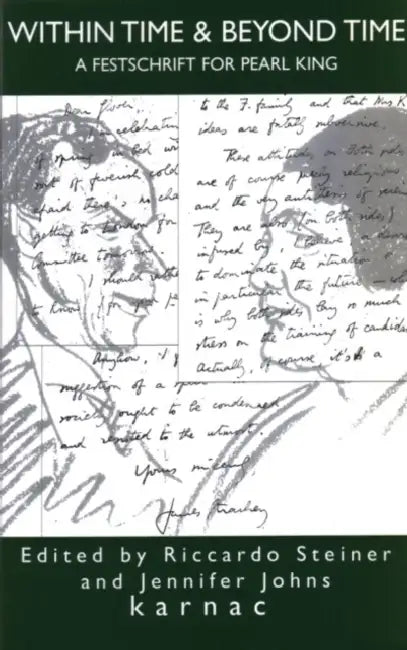 WITHIN TIME & BEYOND TIME
A FESTSCHRIFT FOR PEARL KING
Dear Glover,
celebrating
of spring in bed
sort of feverish cold
afraid there's no cha
getting to London for
Committee tomorrow.
I should
to know (for
to the F. family and that Mrs K
ideas are fatally subversive.
These attitudes, on both sides
are of course purely religious
and the very antithesis of
They are also (on both sides)
infused by, I believe
to dominate the situation
in particular the future
is why both sides lay so much
stress on the training of candida
Actually, of course, it's a
Anyhow, if
suggestion of a
ought to be condemned
and resisted to the utmost.
Yours sincerely
James Strachey
Edited by Riccardo Steiner
and Jennifer Johns
karnac